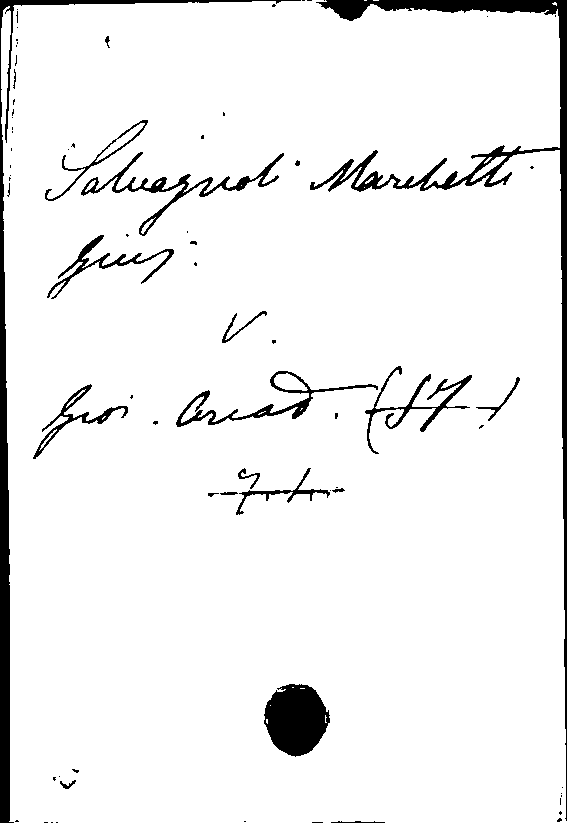 Salvagnoli Marchetti
Gius:
V.
Gioi. Accad. (57)
7.1.